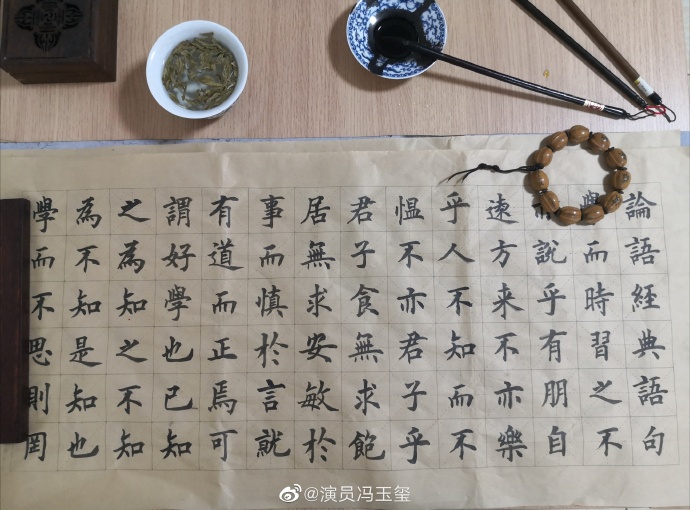 論語經典語句
學而時習之不
説乎有朋自
逺方来不亦樂
乎人不知而不
愠不亦君子乎
君子食無求飽
居無求安敏於
事而慎於言就
有道而正焉可
謂好學也已知
之為知之不知
為不知是知也
學而不思則罔
@演员冯玉玺